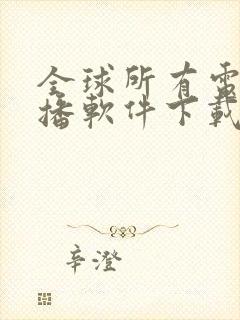 全球所有電
播軟件下載
辛澄